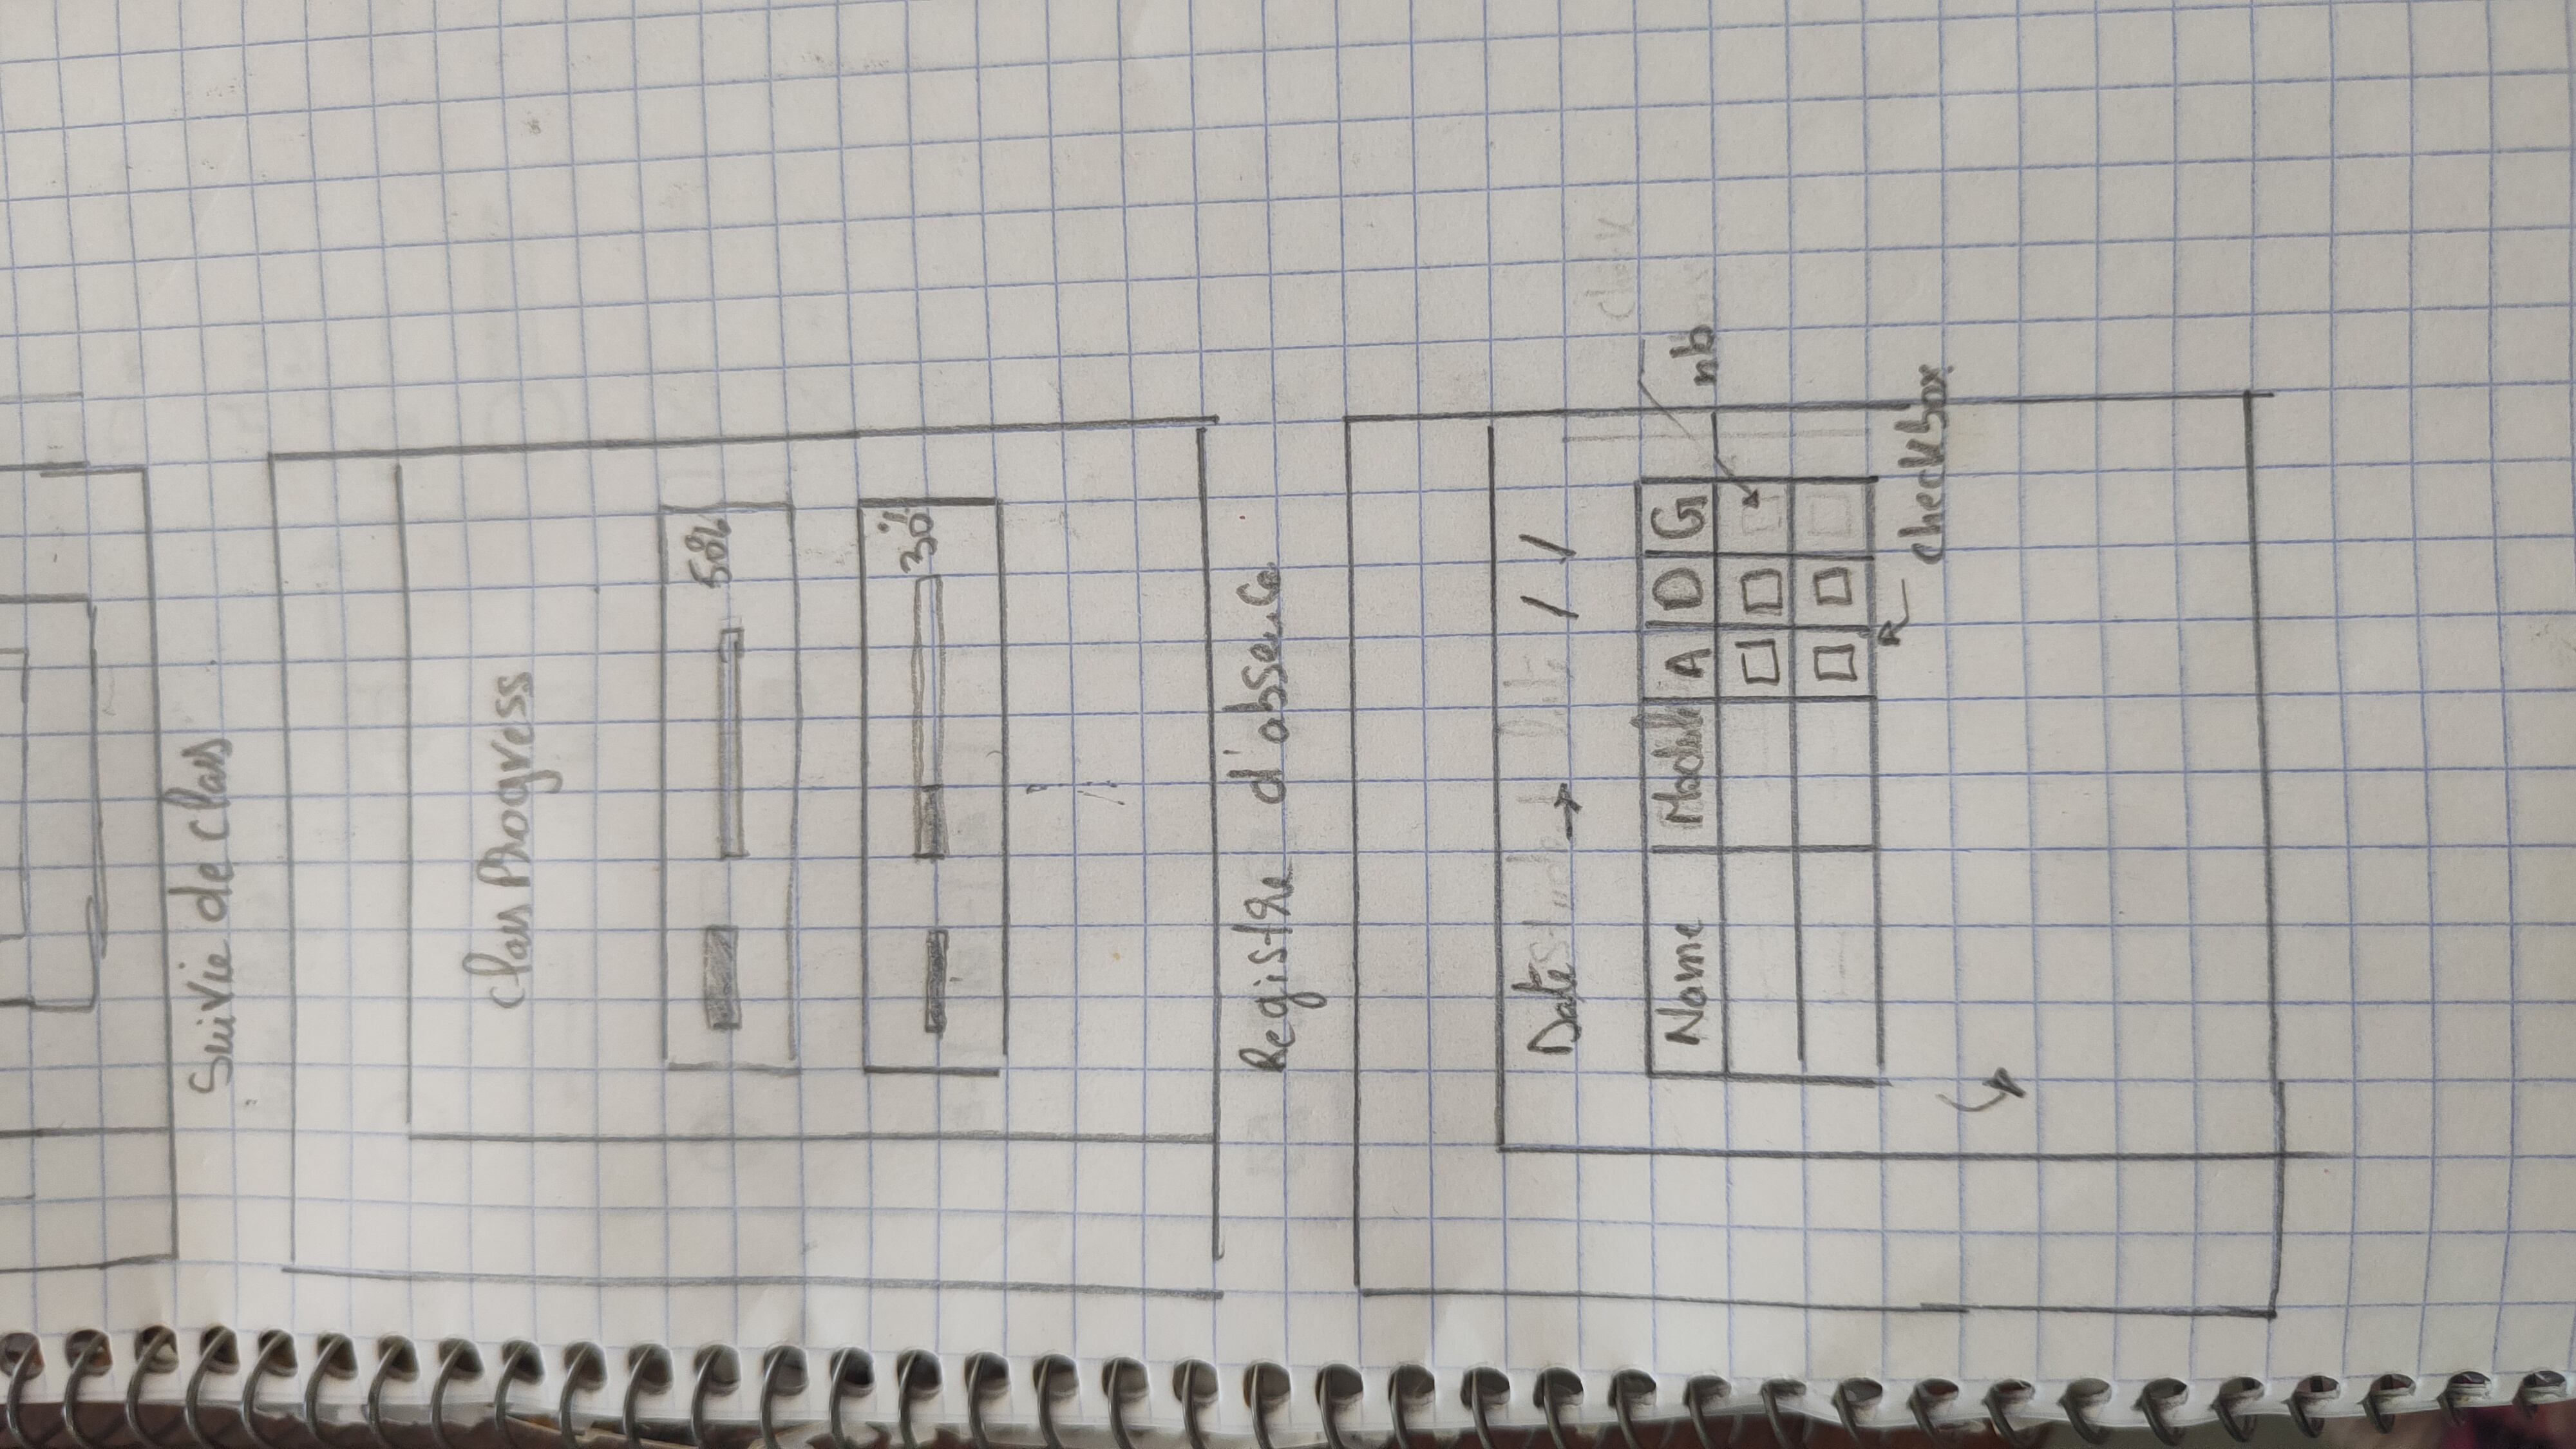 Suivie de class
Class Progress
50%
30%
Registre d'absence
Date → / /
Check
Name Module A D G
nb
checkbox